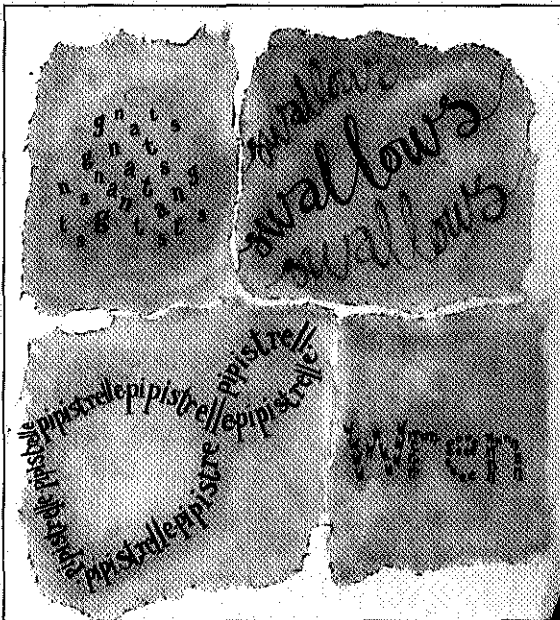 gnats
gnats
gnats
gnats
gnats
gnats
swallows
swallows
swallows
pipistrellepipistrellepipistrellepipistrelle
pipistrellepipistrellepipistre
wren